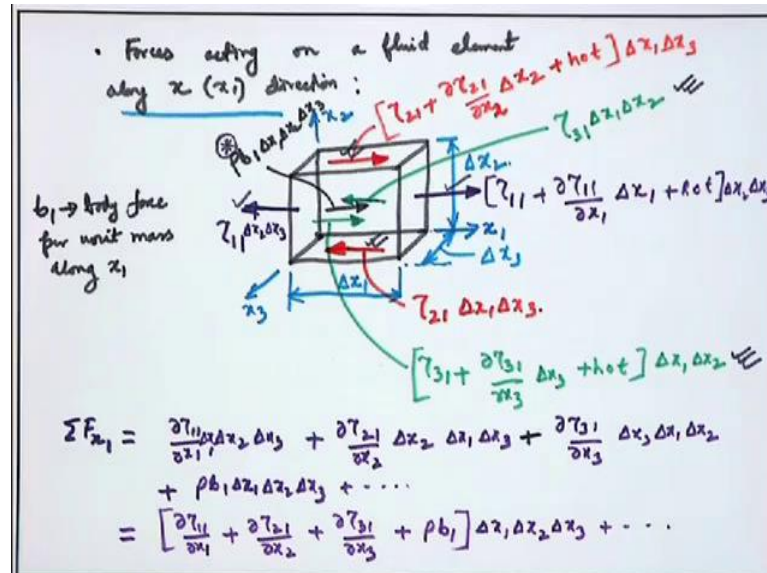 • Forces acting on a fluid element
along x (x₁) direction :
[τ₂₁ + ∂τ₂₁/∂x₂ Δx₂ + hot] Δx₁ Δx₃
x₂
* ρb₁ Δx₁ Δx₂ Δx₃
τ₃₁ Δx₁ Δx₂
Δx₂
b₁ → body force
per unit mass
along x₁
τ₁₁ Δx₂ Δx₃
[τ₁₁ + ∂τ₁₁/∂x₁ Δx₁ + hot] Δx₂ Δx₃
x₁
Δx₃
x₃
Δx₁
τ₂₁ Δx₁ Δx₃.
[τ₃₁ + ∂τ₃₁/∂x₃ Δx₃ + hot] Δx₁ Δx₂
ΣFₓ₁ = ∂τ₁₁/∂x₁ Δx₁ Δx₂ Δx₃ + ∂τ₂₁/∂x₂ Δx₂ Δx₁ Δx₃ + ∂τ₃₁/∂x₃ Δx₃ Δx₁ Δx₂
+ ρb₁ Δx₁ Δx₂ Δx₃ + ....
= [∂τ₁₁/∂x₁ + ∂τ₂₁/∂x₂ + ∂τ₃₁/∂x₃ + ρb₁] Δx₁ Δx₂ Δx₃ + ...